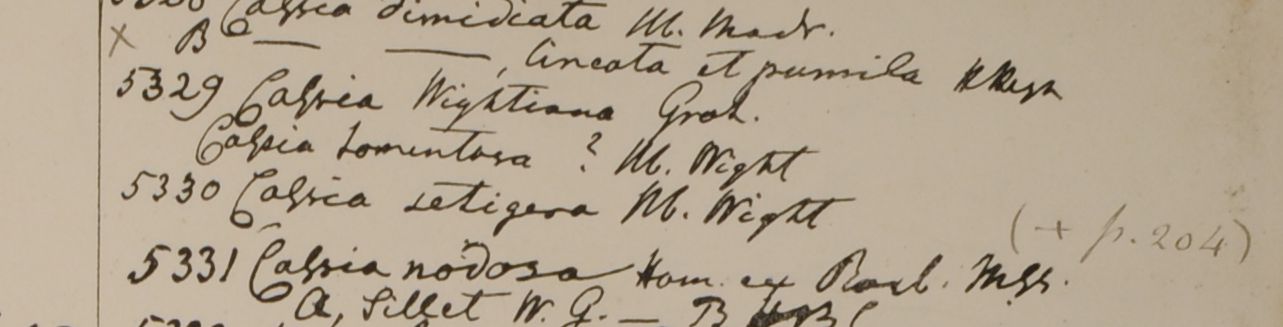 Cassia dimidiata H. Madr.
× B — — , lineata et pumila H
5329 Cassia Wightiana Grah.
Cassia tomentosa ? H. Wight
5330 Cassia setigera H. Wight
(+ p. 204)
5331 Cassia nodosa Ham. ex Roxb. Mss.
a, Sillet W. G. — B